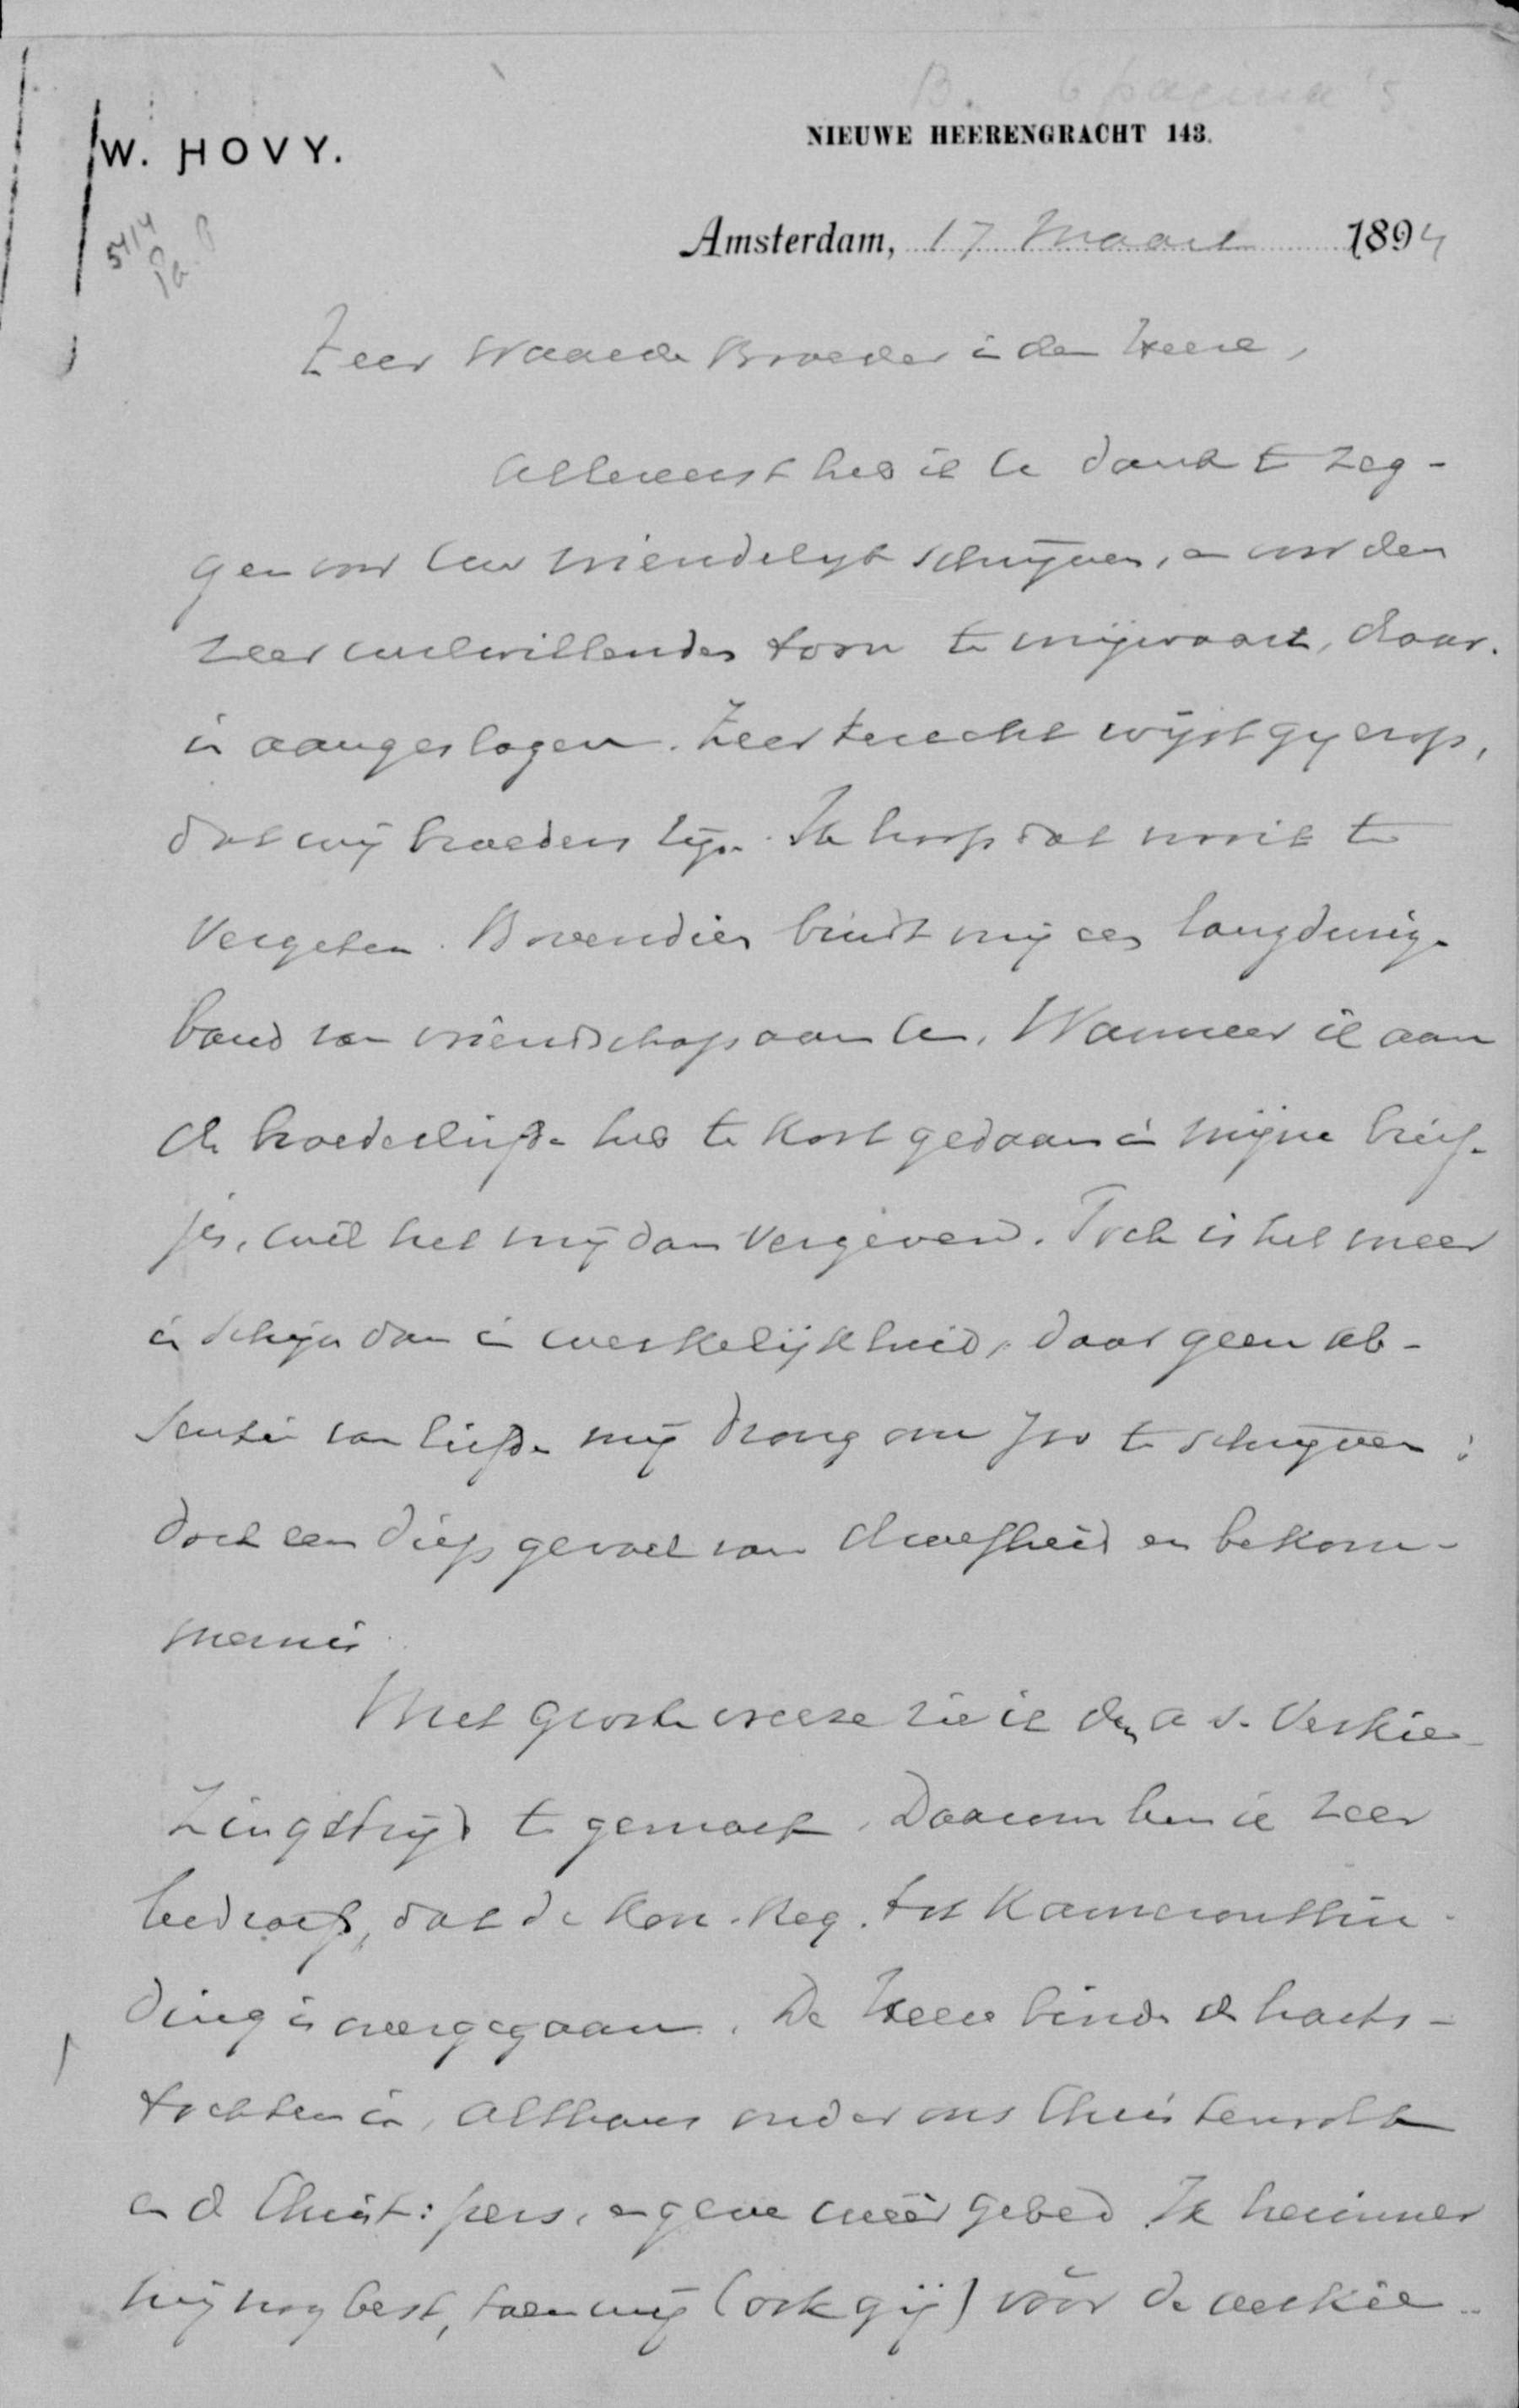 B. 6 pagina's
NIEUWE HEERENGRACHT 143.
W. HOVY.
5414
Amsterdam, 17 Maart 1894
Zeer Waarde Broeder in den Heere,
Allereerst heb ik U dank te zeg-
gen voor Uw vriendelijk schrijven, en voor den
zeer welwillenden toon te mijwaart, daar-
in aangeslagen. Zeer terecht wijst gij erop,
dat wij broeders zijn. Ik hoop dat nooit te
vergeten. Bovendien bindt mij een langdurige
band van vriendschap aan U. Wanneer ik aan
de broederliefde heb te kort gedaan in mijne brief-
jes, wil het mij dan vergeven. Toch is het meer
in schijn dan in werkelijkheid, daar geen ab-
sentie van liefde mij drong om zoo te schrijven:
doch een diep gevoel van droefheid en bekom-
mernis.
Met groote vreeze zie ik den a.s. Verkie-
zingstrijd te gemoet. Daarom ben ik zeer
bedroefd, dat de Kon. Reg. tot Kamerontbin-
ding is overgegaan. De Heere binde de harts-
tochten in, althans onder ons Christenvolk
en de Christ: pers, en geve meer gebed. Ik herinner
mij nog best, toen wij (ook gij) vóór de verkie-